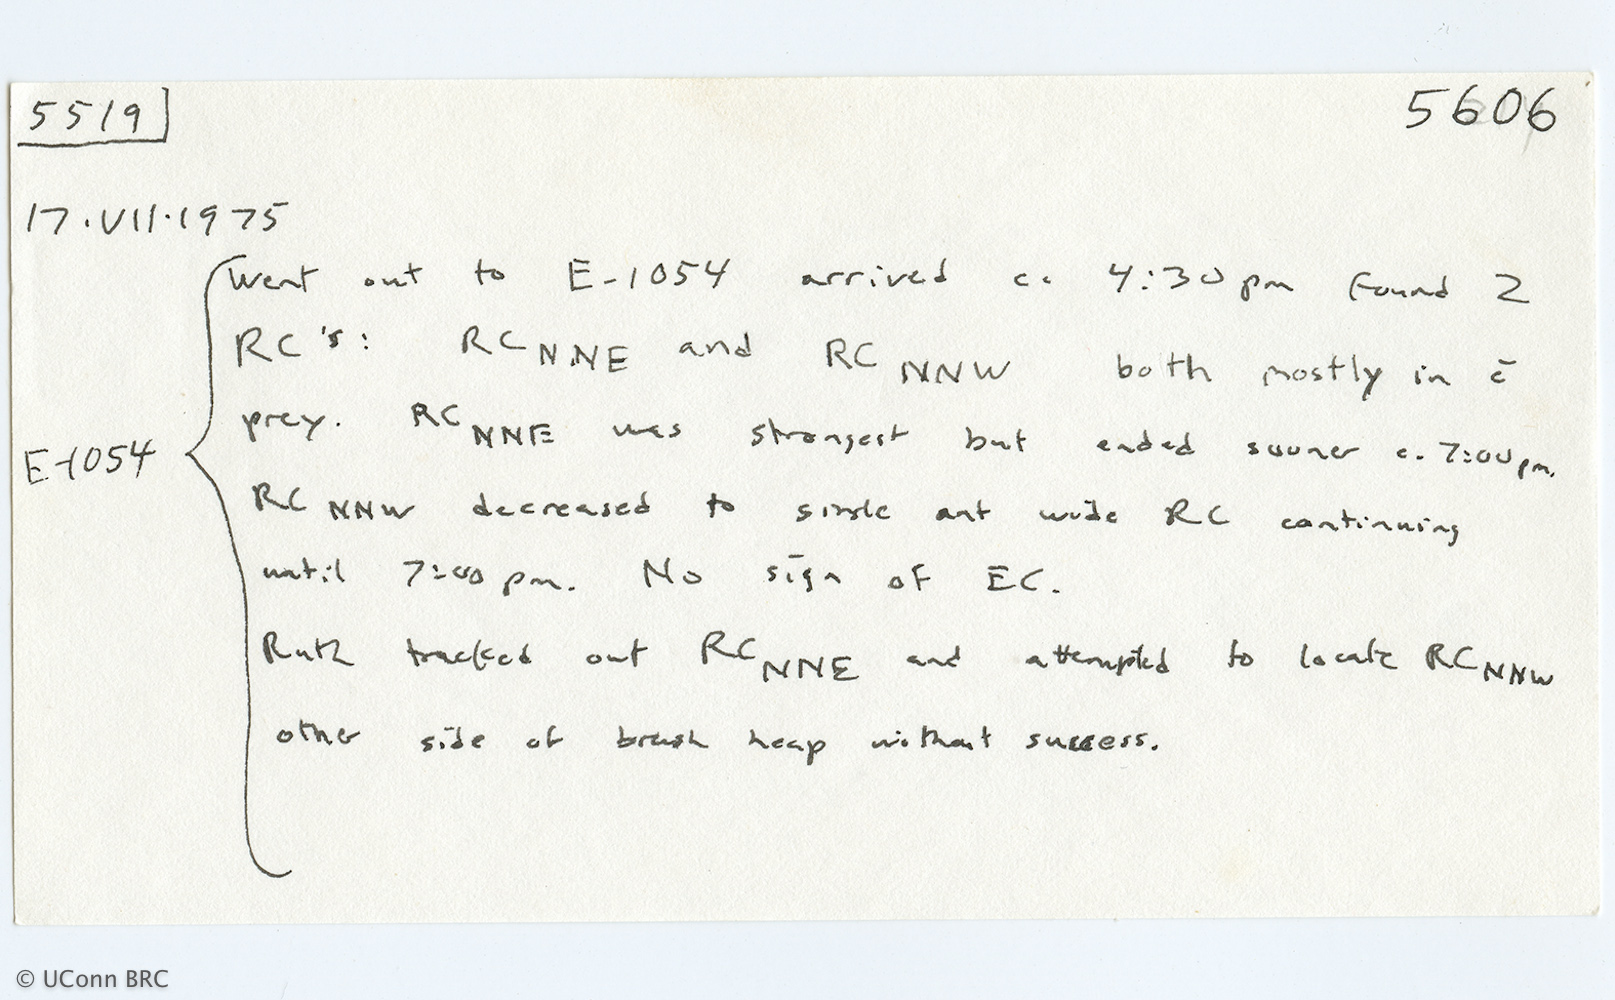 5519
5606
17.VII.1975
Went out to E-1054 arrived c. 4:30 pm found 2
RC's: RC NNE and RC NNW both mostly in c̄
prey. RC NNE was strongest but ended sooner c. 7:00 pm.
E-1054
RC NNW decreased to single ant wide RC continuing
until 7:00 pm. No sign of EC.
Ruth tracked out RC NNE and attempted to locate RC NNW
other side of brush heap without success.
© UConn BRC